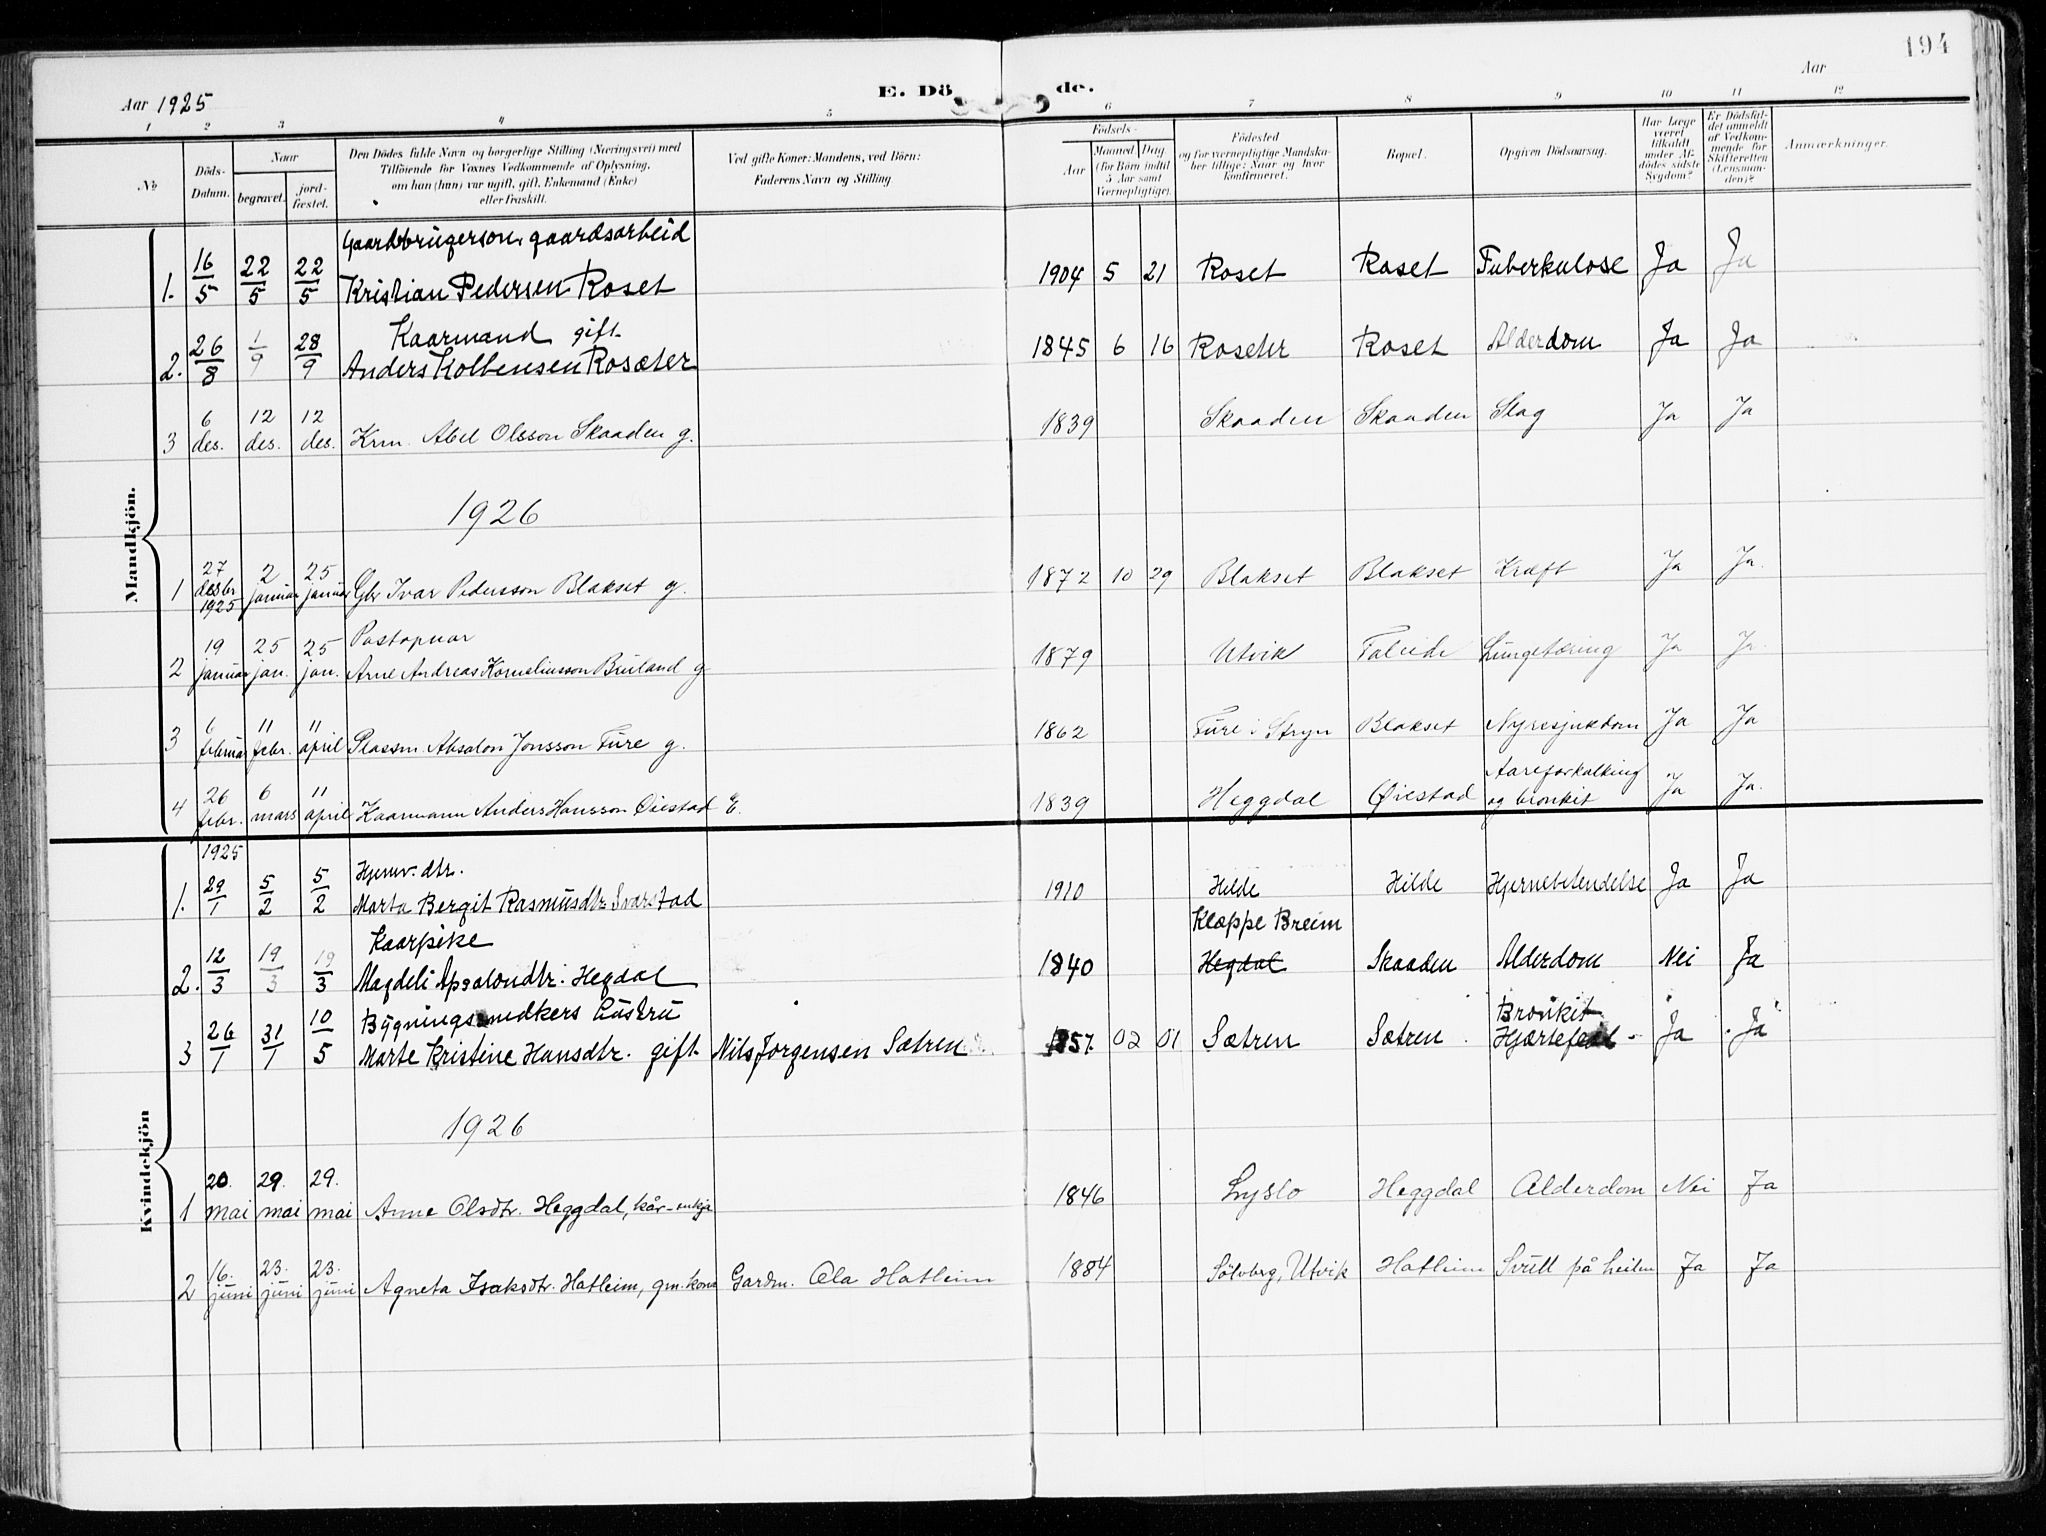 194
Aar 1925
E. Dö de.
Aar
1 2 3 4 5 6 7 8 9 10 11 12
No.
Döds-Datum.
Naar
begravet.
jord-fæstet.
Den Dödes fulde Navn og borgerlige Stilling (Næringsvei) med
Tilföiende for Voxnes Vedkommende af Oplysning,
om han (hun) var ugift, gift, Enkemand (Enke)
eller fraskilt.
Ved gifte Koner: Mandens, ved Börn:
Faderens Navn og Stilling
Födsels-
Aar
Maaned Dag
(for Börn indtil
5 Aar samt
Værnepligtige).
Födested
og for værnepligtige Mandska-
ber tillige: Naar og hvor
konfirmeret.
Bopæl.
Opgiven Dödsaarsag.
Har Læge
været
tilkaldt
under Af-
dødes sidste
Sygdom?
Er Dödsfal-
det anmeldt
af Vedkom-
mende for
Skifteretten
(Lensman-
den)?
Anmærkninger.
Mandkjön.
Gaardbrugerson, gaardsarbeid
1. 16/5 22/5 22/5 Kristian Pedersen Roset 1904 5 21 Roset Roset Tuberkulose Ja Ja
Kaarmand gift
2. 26/8 1/9 28/9 Anders Kolbensen Rosæter 1845 6 16 Roseter Roset Alderdom Ja Ja
3 6 des. 12 des. 12 des. Krm. Abel Olsson Skaaden g. 1839 Skaaden Skaaden Slag Ja Ja
1926
1 27 desbr 1925 2 januar 25 januar Gbr Ivar Pedersson Blakset g. 1872 10 29 Blakset Blakset Kræft Ja Ja.
Postopnar
2 19 januar 25 jan. 25 jan. Arne Andreas Korneliusson Bruland g 1879 Utvik Faleide Lungetæring Ja Ja.
3 6 februar 11 febr. 11 april Plassm. Absalon Jonsson Ture g. 1862 Ture i Stryn Blakset Nyresjukdom Ja Ja
Aareforkalking
4 26 febr. 6 mars 11 april Kaarmann Anders Hansson Øiestad E. 1839 Heggdal Øiestad og bronkit Ja Ja.
Kvindekjön
1925
Hjemv. dtr.
1. 29/1 5/2 5/2 Marta Bergit Rasmusdtr Svarstad 1910 Hilde Hilde Hjernebetendelse Ja Ja
Kaarpike Klæppe Breim
2. 12/3 19/3 19/3 Magdeli Apsalondtr. Hegdal 1840 Hegdal Skaaden Alderdom Nei Ja
Bygningssnedkers hustru Bronkit
3 26/1 31/1 10/5 Marte Kristine Hansdtr. gift Nils Jørgensen Sætren 1857. 02 01 Sætren Sætren Hjærtefeil Ja Ja
1926
1 20. mai 29. mai 29. mai Anne Olsdtr. Heggdal, kår-enkje 1846 Lyslo Heggdal Alderdom Nei Ja
2 16. juni 23. juni 23. juni Agneta Isaksdtr. Hatleim, gm.kona Gardm. Ola Hatleim 1884 Sölvberg, Utvik Hatleim Svull på heilen Ja Ja